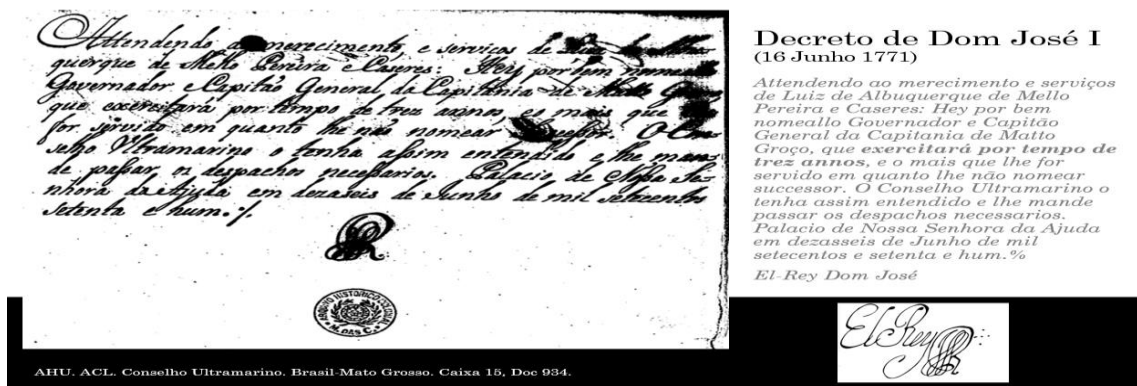 Attendendo ao merecimento, e serviços de Luiz de Albu
querque de Mello Pereira e Caseres: Hey por bem nomeallo
Governador e Capitão General da Capitania de Matto Groço
que exercitará por tempo de trez annos, e o mais que lhe
for servido em quanto lhe não nomear successor. O Con
selho Ultramarino o tenha assim entendido e lhe mande
de passar os despachos necessarios. Palacio de Nossa Se
nhora da Ajuda em dezaseis de Junho de mil setecentos
setenta e hum.
ARQUIVO HISTORICO COLONIAL
M. DAS C.
AHU. ACL. Conselho Ultramarino. Brasil-Mato Grosso. Caixa 15, Doc 934.
Decreto de Dom José I
(16 Junho 1771)
Attendendo ao merecimento e serviços
de Luiz de Albuquerque de Mello
Pereira e Caseres: Hey por bem
nomeallo Governador e Capitão
General da Capitania de Matto
Groço, que exercitará por tempo de
trez annos, e o mais que lhe for
servido em quanto lhe não nomear
successor. O Conselho Ultramarino o
tenha assim entendido e lhe mande
passar os despachos necessarios.
Palacio de Nossa Senhora da Ajuda
em dezasseis de Junho de mil
setecentos e setenta e hum.%
El-Rey Dom José
El Rey